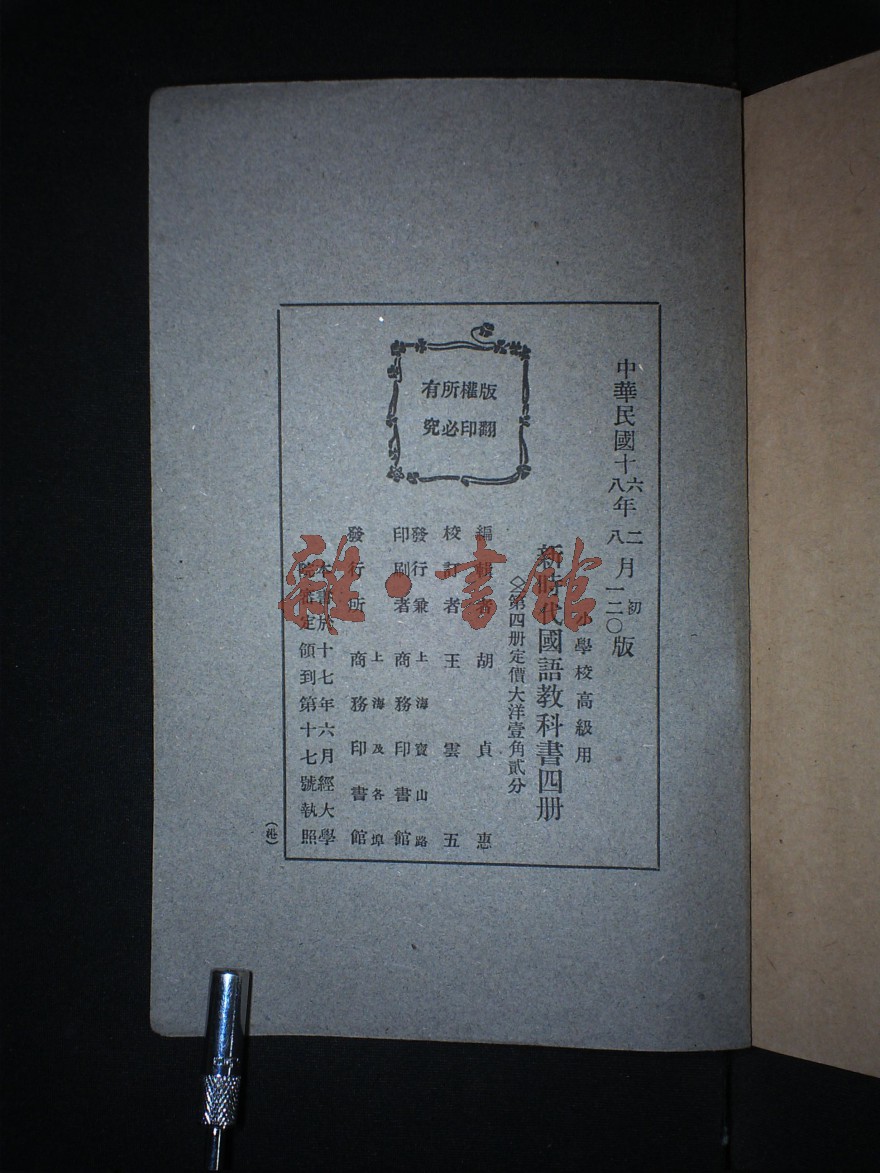 版權所有
翻印必究
中華民國十六八年二八月初一二〇版
小學校高級用
新時代國語教科書四册
第四册定價大洋壹角貳分
編輯者 胡貞惠
校訂者 王雲五
發行兼 上海寶山路
印刷者 商務印書館
上海及各埠
發行所 商務印書館
本書於十七年六月經大學
院審定領到第十七號執照
雜·書館